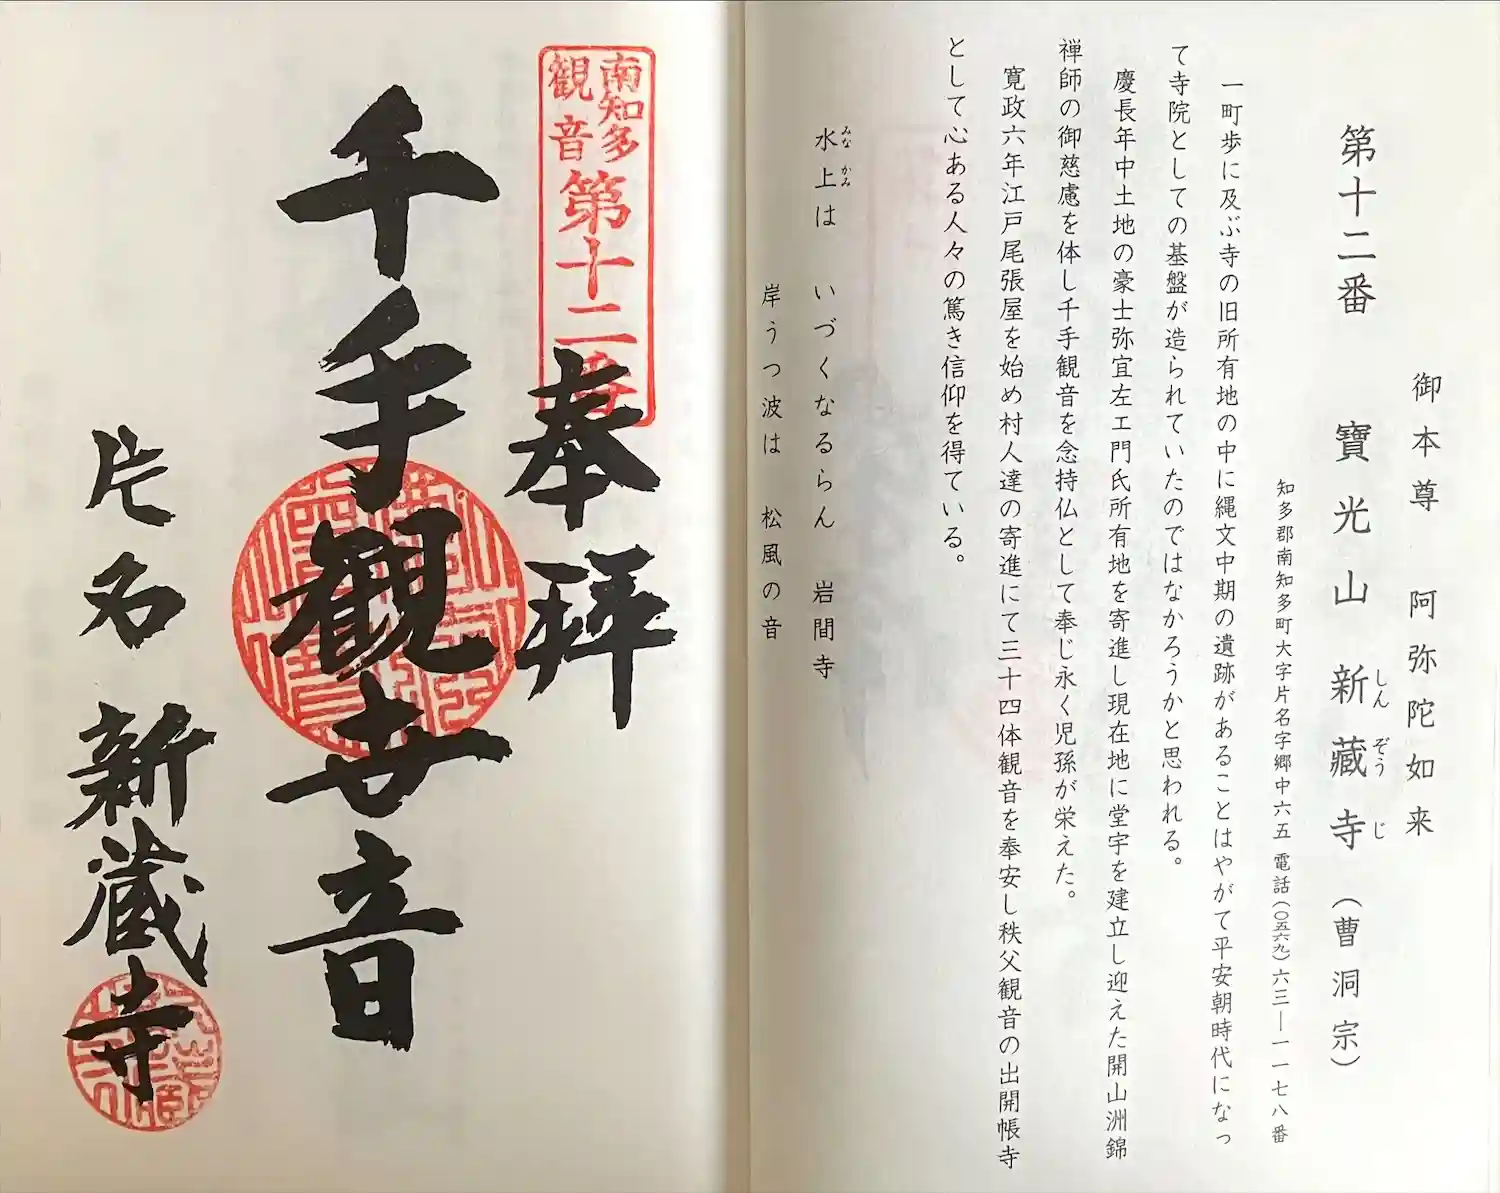 御本尊　阿弥陀如来
第十二番　寶光山新蔵寺（曹洞宗）
しんぞうじ
知多郡南知多町大字片名字郷中六五　電話（〇五六九）六三―一一七八番
一町歩に及ぶ寺の旧所有地の中に縄文中期の遺跡があることはやがて平安朝時代になっ
て寺院としての基盤が造られていたのではなかろうかと思われる。
慶長年中土地の豪士弥宜左エ門氏所有地を寄進し現在地に堂宇を建立し迎えた開山洲錦
禅師の御慈慮を体し千手観音を念持仏として奉じ永く児孫が栄えた。
寛政六年江戸尾張屋を始め村人達の寄進にて三十四体観音を奉安し秩父観音の出開帳寺
として心ある人々の篤き信仰を得ている。
みなかみ
水上は　いづくなるらん　岩間寺
岸うつ波は　松風の音
南知多
観音
第十二番
奉拝
千手観世音
片名　新蔵寺